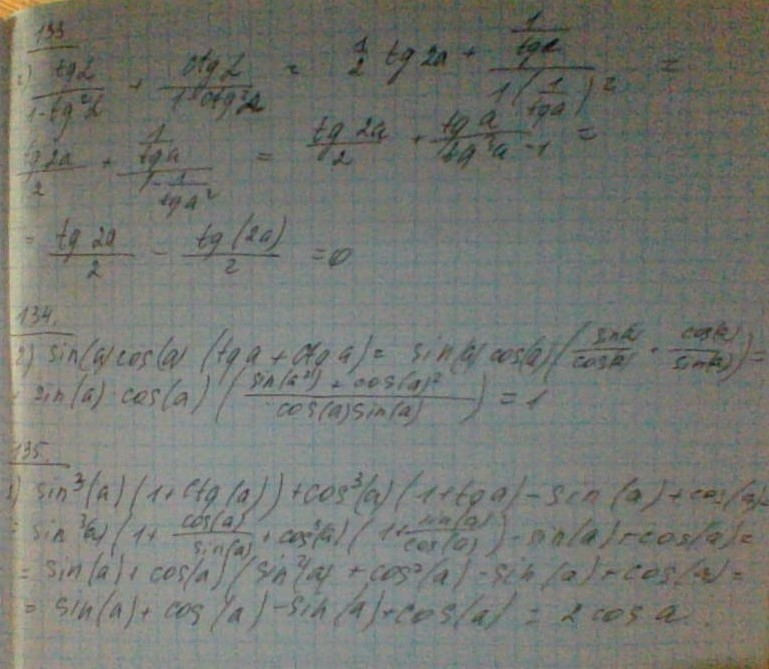 133
2) tg α / (1-tg²α) + ctg α / (1-ctg²α) = 1/2 tg 2a + (1/tga) / (1(1/tga)²) =
tg 2a / 2 + (1/tga) / (1-1/tga²) = tg 2a / 2 + tg a / (tg²a -1) =
= tg 2a / 2 - tg (2a) / 2 = 0
134.
2) sin(a) cos(a) (tg a + ctg a) = sin(a) cos(a) (sin(a)/cos(a) + cos(a)/sin(a)) =
sin(a) · cos(a) ((sin(a²) + cos(a)²) / (cos(a) sin(a))) = 1
135.
1) sin³(a) (1+ctg(a)) + cos³(a) (1+tg a) - sin(a) + cos(a) =
= sin³(a) (1+ cos(a)/sin(a) + cos³(a) (1+ sin(a)/cos(a)) - sin(a) + cos(a) =
= sin(a) + cos(a) (sin²(a) + cos²(a) - sin(a) + cos(a) =
= sin(a) + cos(a) - sin(a) + cos(a) = 2 cos a